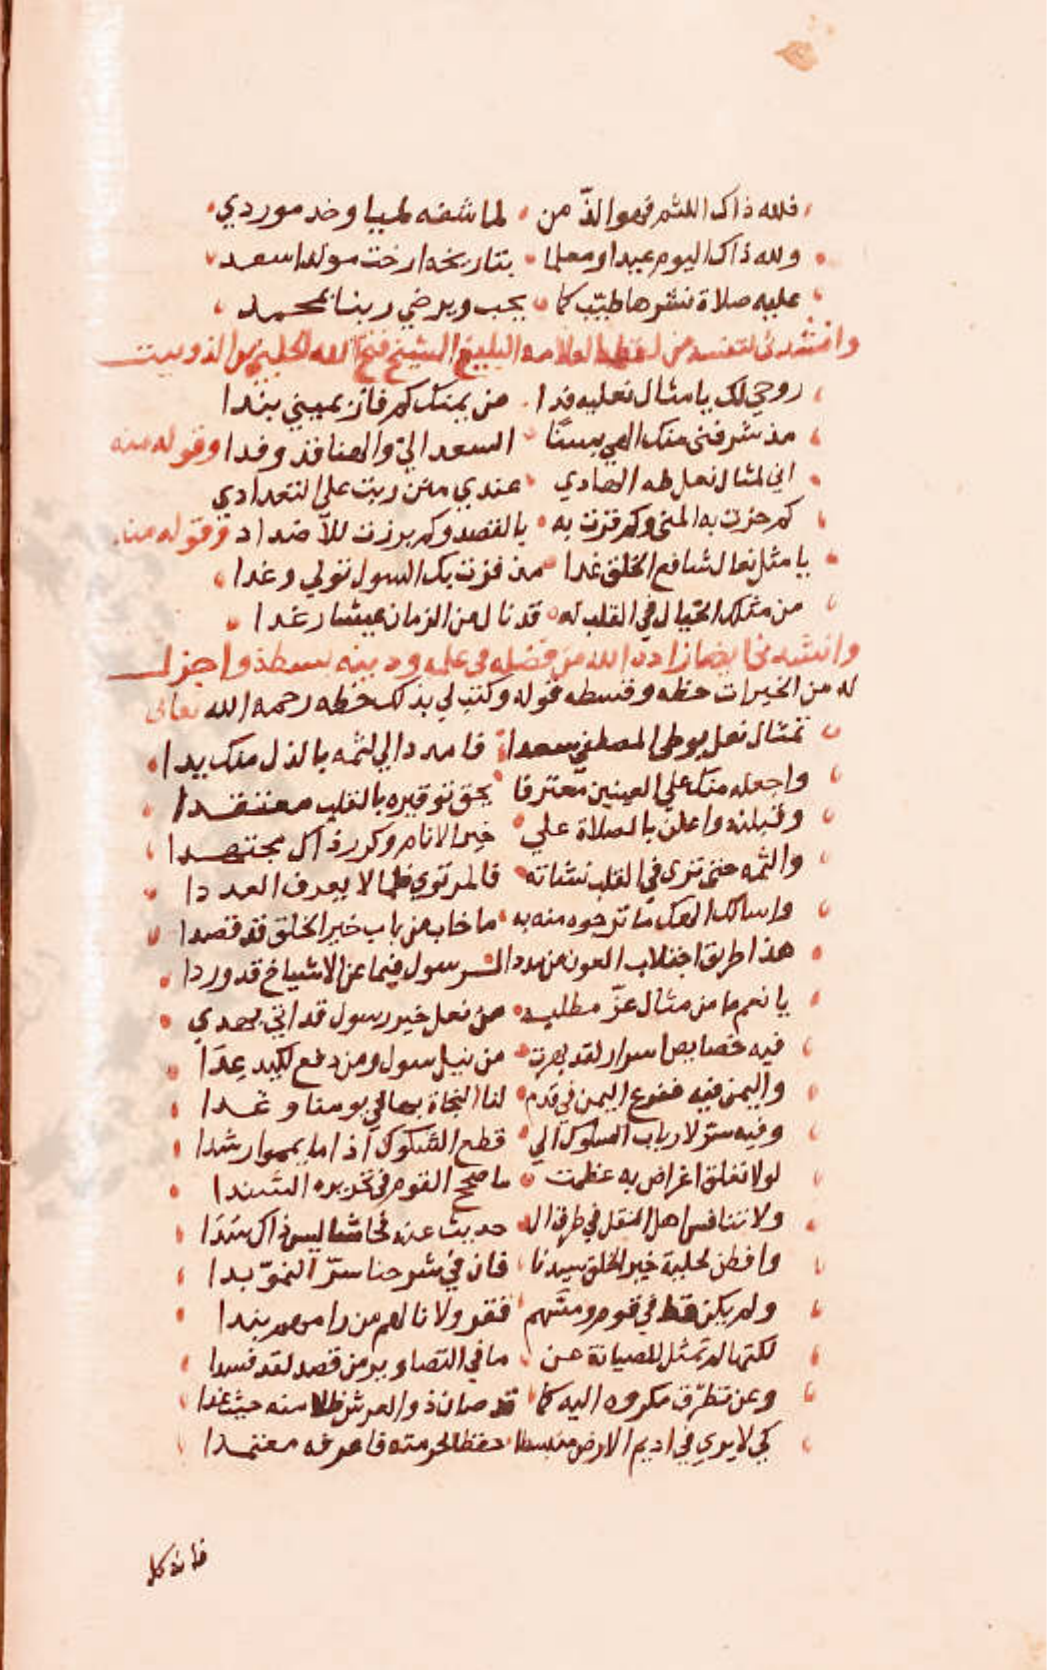 فلله ذاك اللثم فهو الذّ من لماشفه لميا وخد موردي
ولله ذاك اليوم عيدا ومعلما بتاريخه ارخت مولدا سعد
عليه صلاة نشرها طيّب كما يحب ويرضي ربنا لمحمد
وانشدني لنفسه من لفظه العلامه البليغ الشيخ فتح الله الحلبي
روحي لك يا مثال نعليه فدا من يمنك كم فاز يميني بندا
مذ شرفني منك الهي بسنا السعد اليّ والهنا قد وفدا وقوله منه
اني لمثال نعل طه الهادي عندي منن ربت علي التعدادي
كم حزت به المنى وكم فزت به بالقصد وكم برزت للاضداد وقوله منه
يا مثل نعال شافع الخلق غدا من فزت بك السول تولي وغدا
من مثلك الخيال في القلب له قد نال من الزمان عيشا رغدا
وانشدني ايضا زاده الله من فضله في علمه ودينه بسطة واجزل
له من الخيرات حظه وقسطه قوله وكتب لي بذلك خطه رحمه الله تعالى
تمثال نعل بوطى المصطفى سعدا فامدد الي لثمه بالذل منك يدا
واجعله منك علي العينين معترفا بحق توقيره بالقلب معتقدا
وقبلنه واعلن بالصلاة علي خير الانام وكرر ذاك مجتهدا
والثمه حتى ترى في القلب نشاته فالمرتوي ظما لا يعرف العددا
واسالك الهك ما ترجوه منه به ما خاب من باب خير الخلق قد قصدا
هذا طريق اجتلاب العون من مدد الرسول فيما عن الاشياخ قد وردا
يا نعم ما من مثال عزّ مطلبه من نعل خير رسول قد اتي بهدي
فيه خصايص اسرار لقد بهرت من نيل سول ومن دفع لكيد عِدَا
واليمن فيه ففوع اليمن في قدم لنا النجاة بها في يومنا وغدا
وفيه ستر لارباب السلوك الي قطع الشكوك اذا ما يمموا رشدا
لولا تعلق اغراض به عظمت ما صحح القوم في تحريره السندا
ولا تنافس اهل النقل في طرق الـ حديث عنه فحاشا ليس ذاك سدا
وافطن لحلية خير الخلق سيدنا فان في شرحنا سرّ النموّ بدا
ولم يكن قط في قوم ومسّهم فقر ولا نالهم من رامهم بندا
لكنها لم تمثل للصيانة عن ما في التصاوير من قصد لقد فسدا
وعن تطرّق مكروه اليه كما قد صان ذو العرش ظلا منه حيث غدا
كي لا يري في اديم الارض منبسطا حفظا لحرمته فاعرفه معتمدا
فان كل